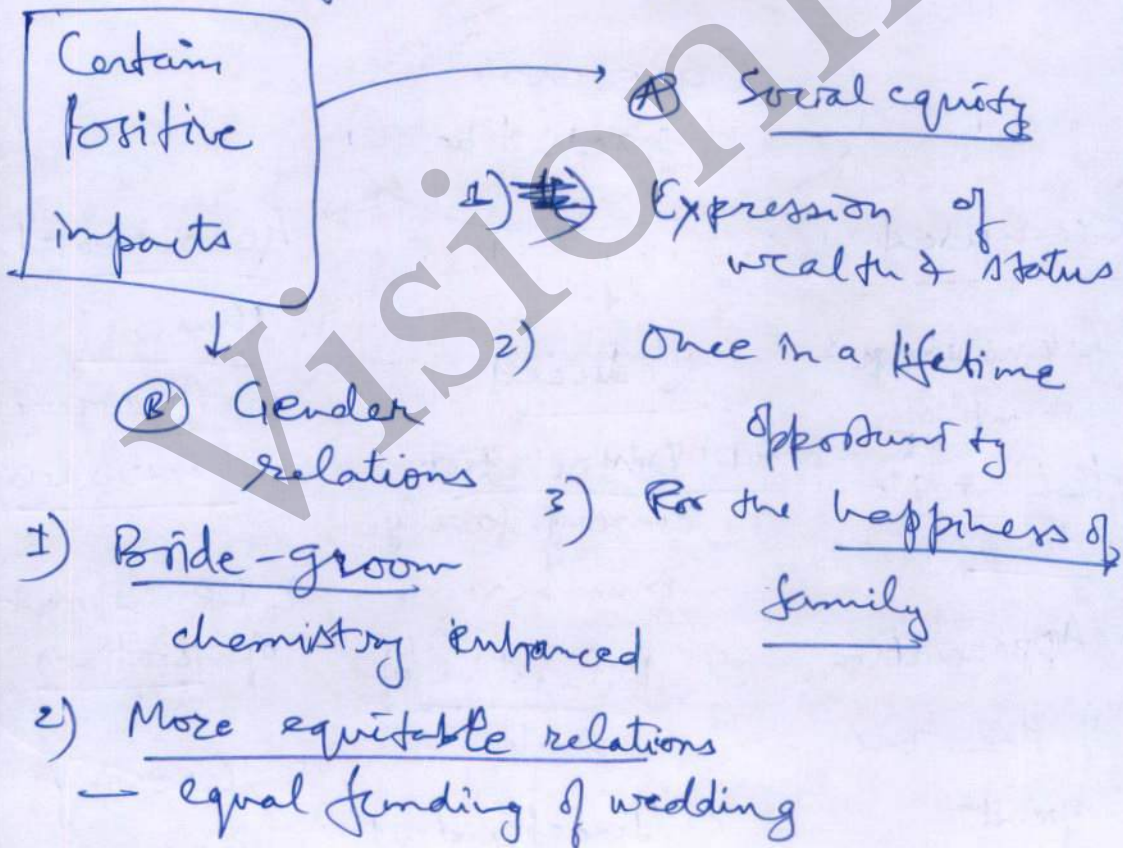 Certain
Positive
impacts
Ⓐ Social equity
1) Expression of
wealth & status
2) Once in a lifetime
opportunity
3) For the happiness of
family
Ⓑ Gender
relations
1) Bride-groom
chemistry enhanced
2) More equitable relations
— equal funding of wedding
Vision